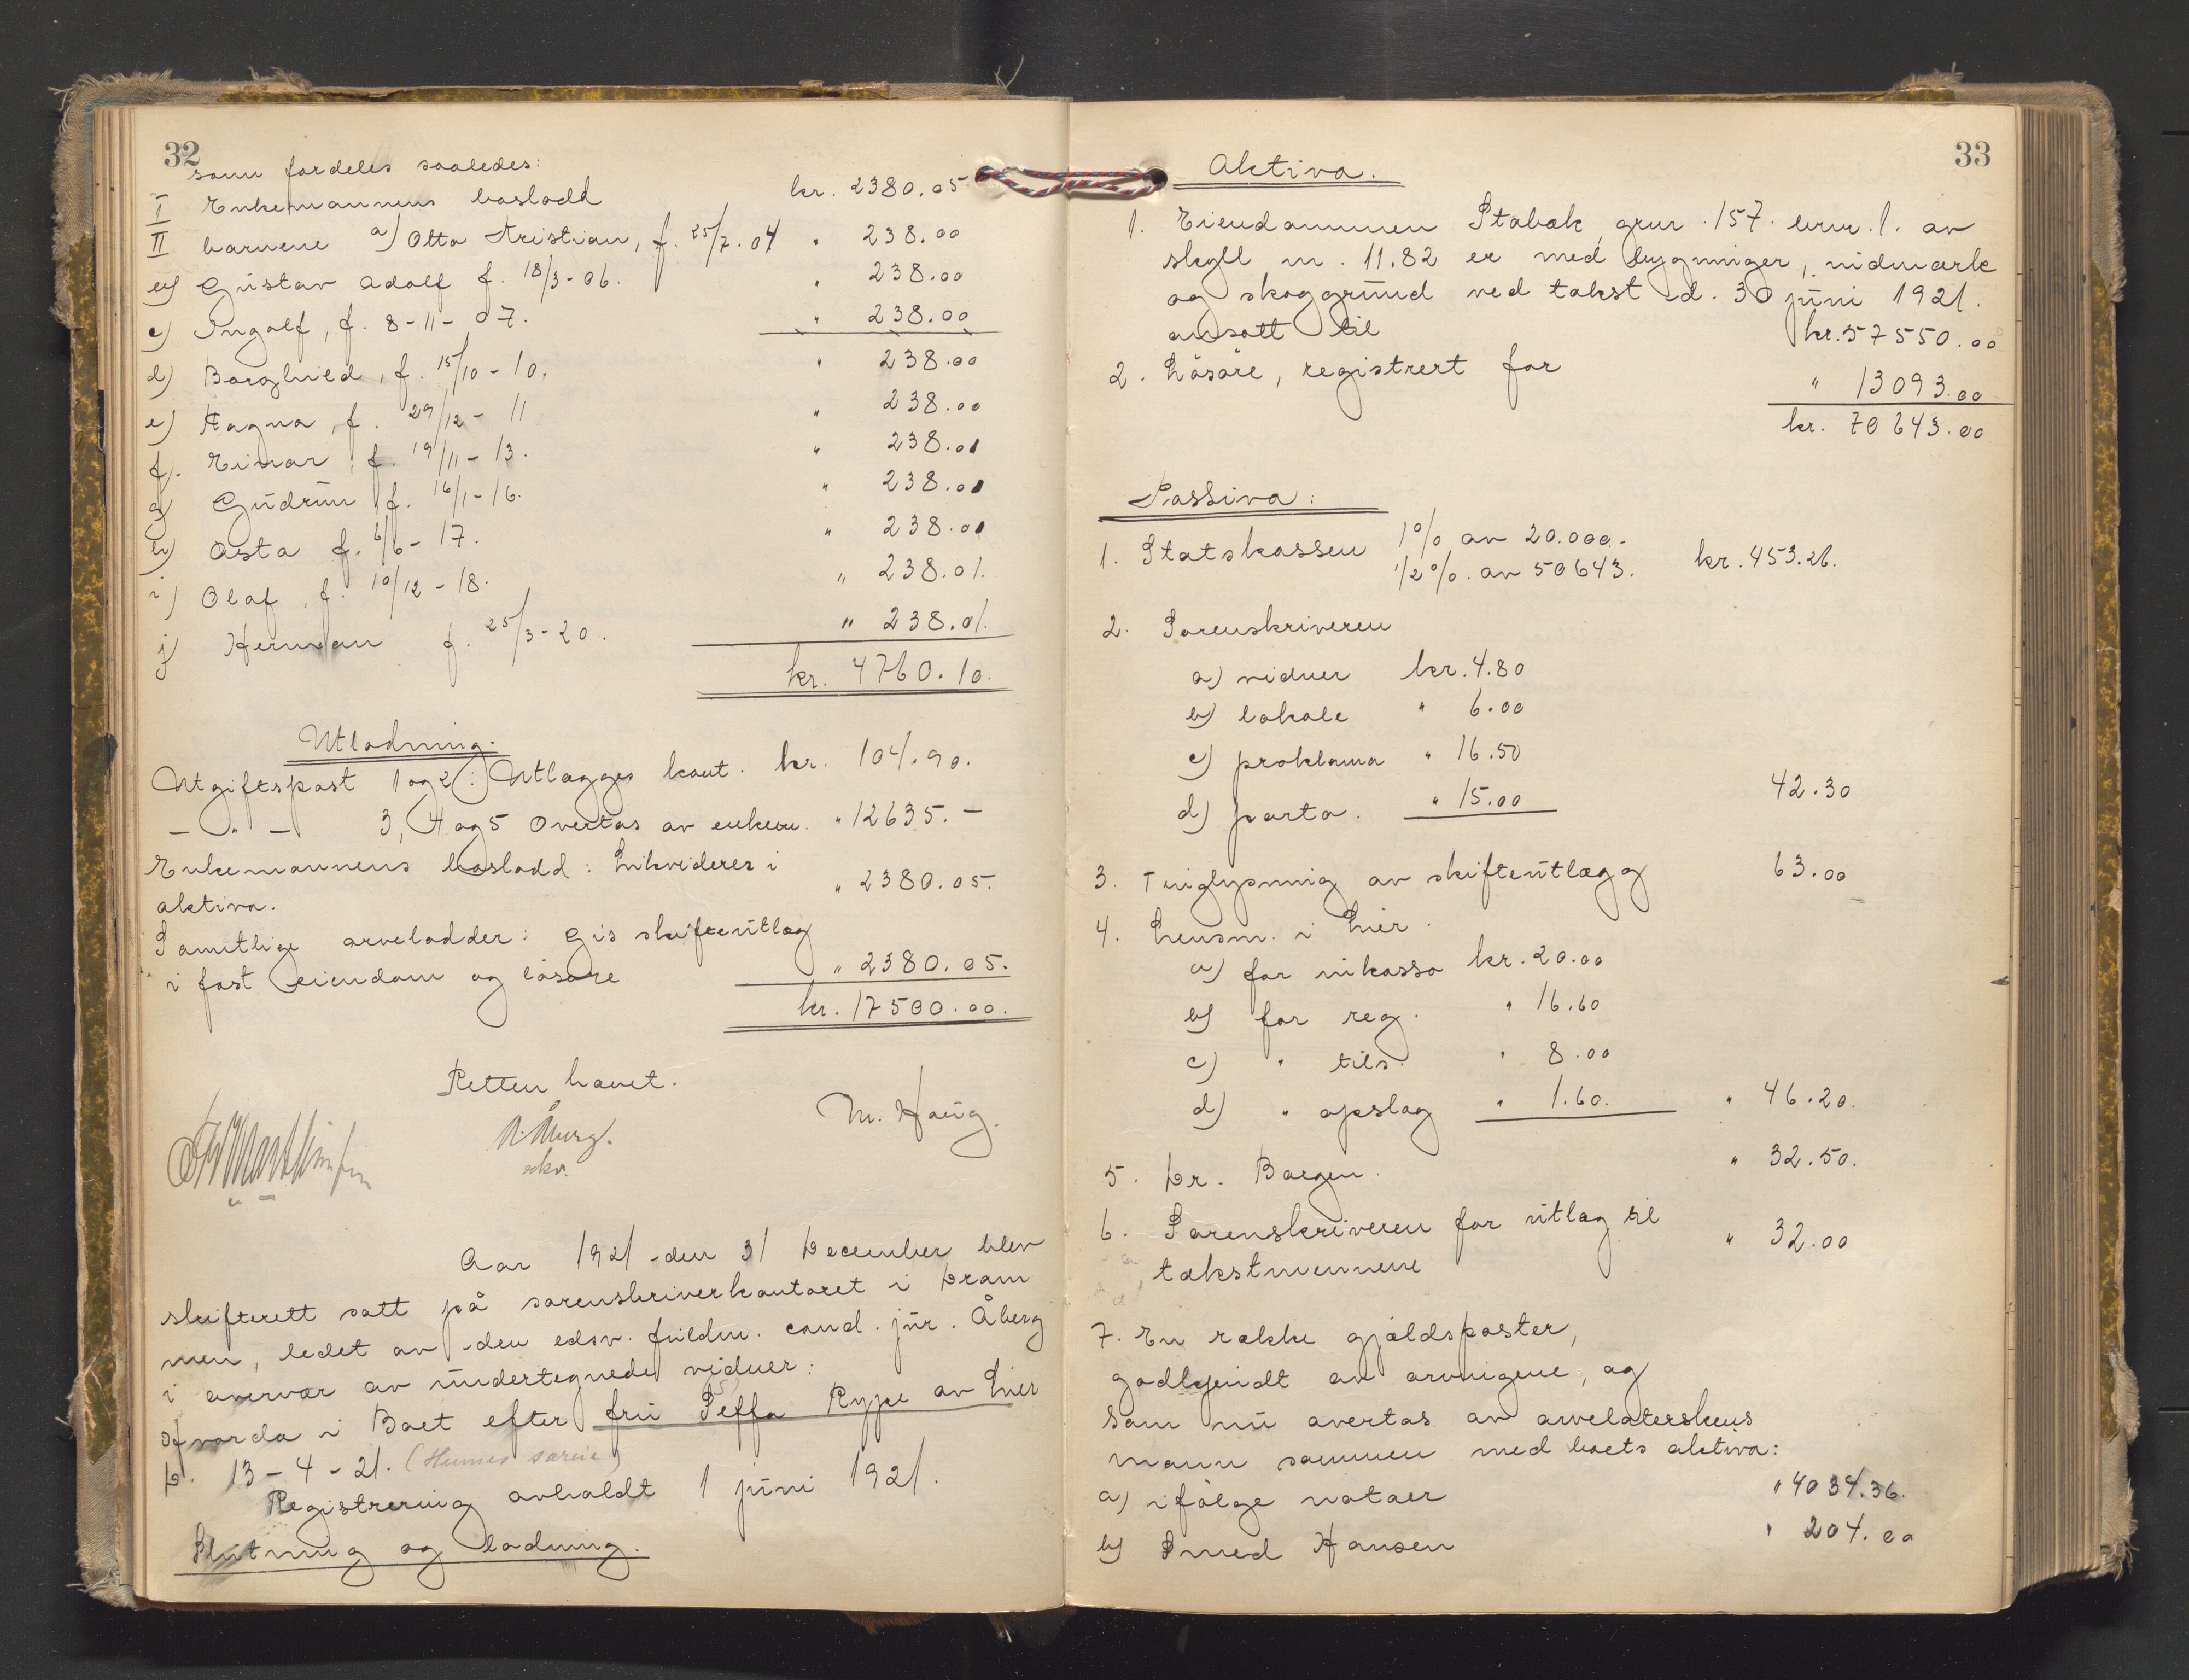 32
som fordeles saaledes:
I Enkemannens boslodd kr. 2380.05
II barnene a) Otto Kristian, f. 25/7.04 " 238.00
b) Gustav Adolf f. 18/3-06. " 238.00
c) Ingolf, f. 8-11-07. " 238.00
d) Borghild, f. 15/10-10. " 238.00
e) Magna, f. 29/12-11 " 238.00
f) Einar f. 19/11-13. " 238.01
g) Gudrun f. 16/1-16. " 238.01
h) Asta f. 6/6-17. " 238.01
i) Olaf, f. 10/12-18. " 238.01.
j) Herman f. 25/3-20. " 238.01.
kr. 4760.10.
Utlodning.
Utgiftspost 1 og 2: Utlægges kont. kr. 104.90.
— " — 3, 4 og 5 Overtas av enkem. " 12635.—
Enkemannens boslodd: Likvideres i
aktiva. " 2380.05.
Samtlige arvelodder: Gis skifteutlæg
i fast eiendom og løsøre " 2380.05.
kr. 17500.00.
Retten hævet.
N. Åberg.
edsv.
M. Haug.
Aar 1921 den 31 December blev
skifterett satt på sorenskriverkontoret i Dram
men, ledet av den edsv. fuldm. cand. jur. Åberg
i overvær av undertegnede vidner:
Hvorda i Boet efter fru Seffa Rype av Lier
D. 13-4-21. (Hennes særeie)
Registrering avholdt 1 juni 1921.
Slutning og lodning.
33
Aktiva.
1. Eiendommen Stabæk, gnr. 157. bnr. 1. av
skyld m. 11.82 er med bygninger, utmark
og skoggrund ved takst d. 30 juni 1921.
ansatt til kr. 57550.00
2. Løsøre, registrert for " 13093.00
kr. 70643.00
Passiva:
1. Statskassen 1% av 20.000.-
1/2%. av 50643. kr. 453.26.
2. Sorenskriveren
a) vidner kr. 4.80
b) lokale " 6.00
c) proklama " 16.50
d) porto. " 15.00 42.30
3. Tinglysning av skifteutlægg 63.00
4. Lensm. i Lier.
a) for inkasso kr. 20.00
b) for reg. " 16.60
c) " tils. " 8.00
d) " opslag " 1.60. " 46.20.
5. Dr. Borgen. " 32.50.
6. Sorenskriveren for utlæg til
takstmennene " 32.00
7. En række gjældsposter,
godkjendt av arvingene, og
som nu overtas av arvelaterskens
mann sammen med boets aktiva:
a) ifølge notaer " 4034.36.
b) Smed Hansen " 204.00